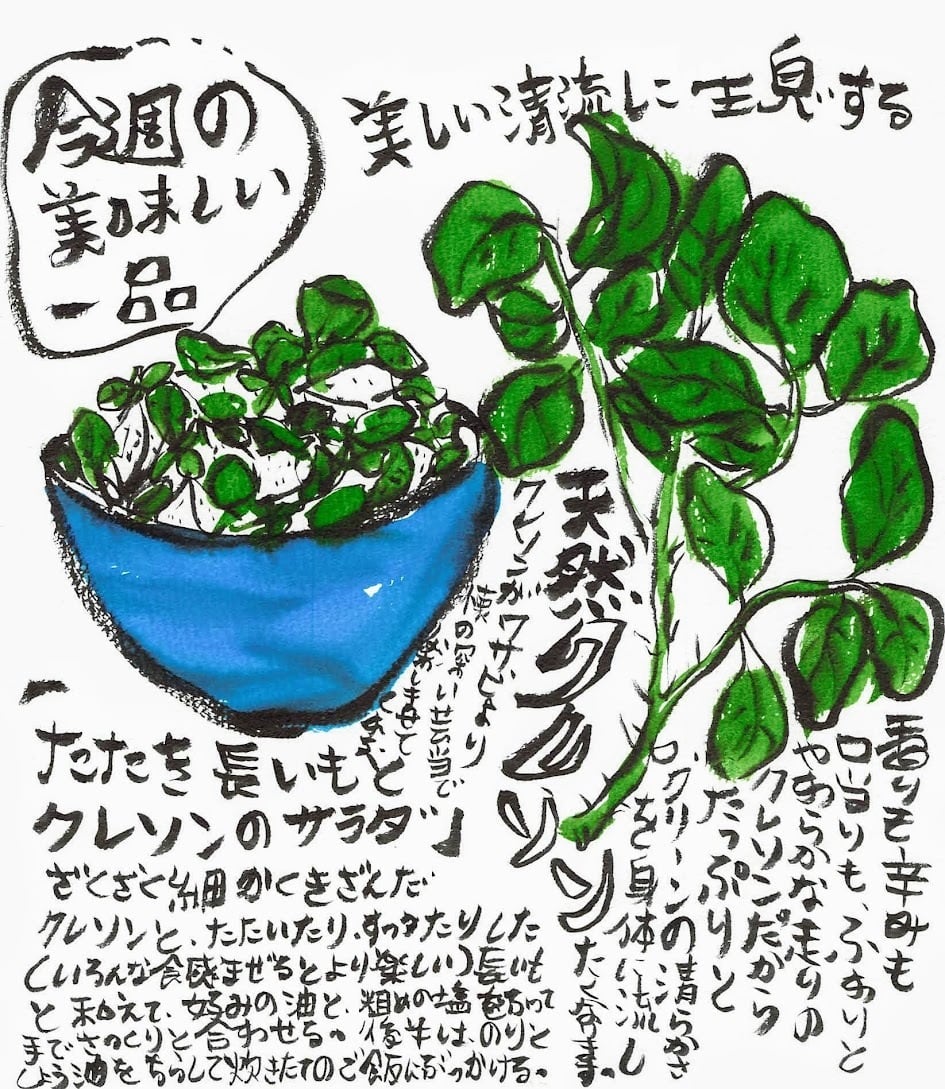 今週の
美味しい
一品
美しい清流に生息する
天然クレソン
香りも辛みも
口当りも、ふありと
やわらかな走りの
クレソンだから
たっぷりと
グリーンの清らかさ
を身体に流し
たくなります。
クレソンがワサビより
「たたき長いもと
クレソンのサラダ」
ざくざく細かくきざんだ
クレソンと、たたいたり、すったりした
(いろんな食感まぜるとより楽しい)長いも
と和えて、好みの油と、粗めの塩をふって
さっくりと合わせる。後半は、のりと
しょう油をちらして炊きたてのご飯にぶっかける。